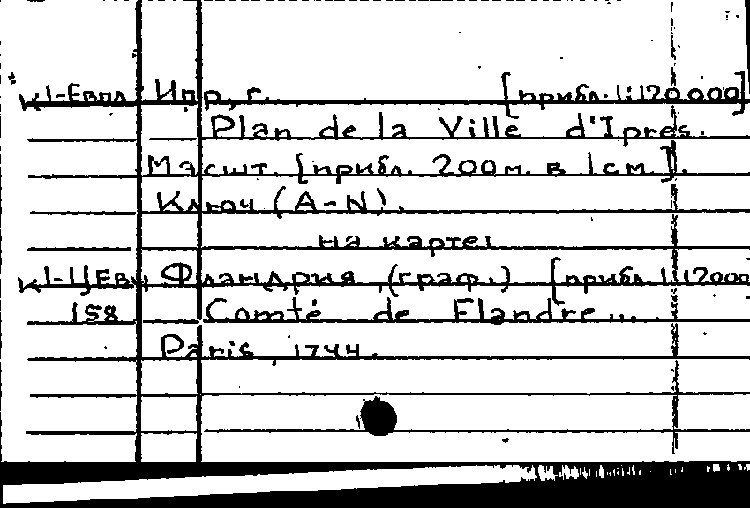 К1-Евпл Ипр, г. [прибл. 1:120.000]
Plan de la Ville d'Ipres.
Масшт. [прибл. 200 м. в 1 см.].
Ключ (A-N).
на карте:
К1-ЦЕвч Фландрия, (граф.) [прибл. 1:112000
158 Comté de Flandre...
Paris, 1744.